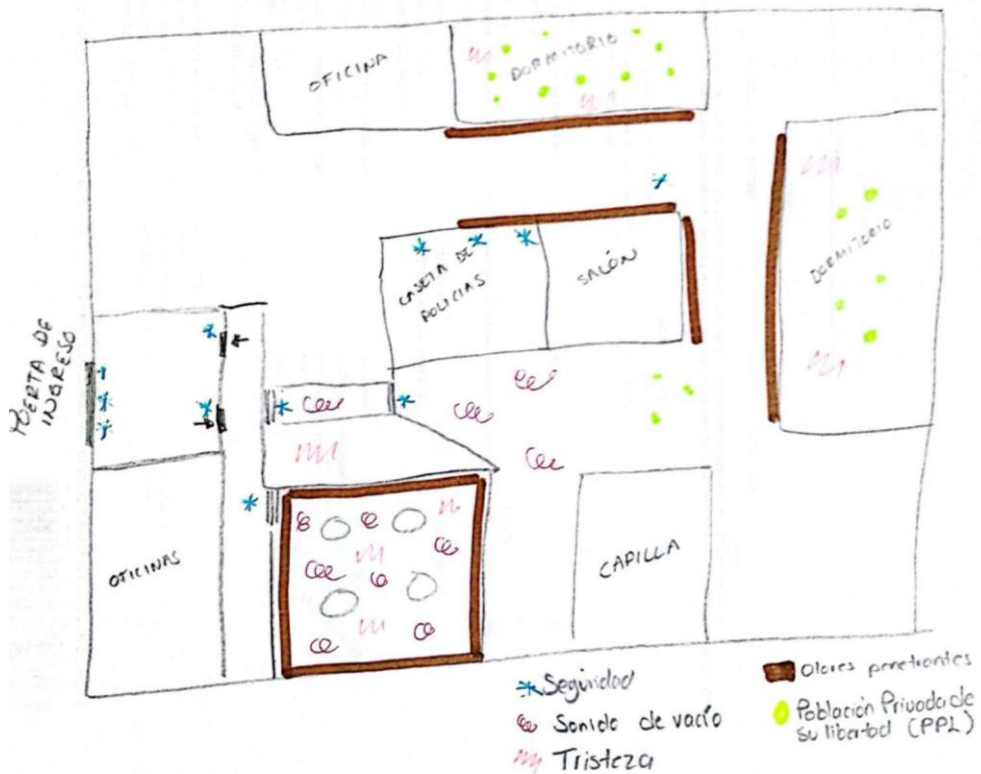 OFICINA
DORMITORIO
DORMITORIO
CASETA DE
POLICIAS
SALÓN
PUERTA DE
INGRESO
OFICINAS
CAPILLA
Seguridad
Sonido de vacío
Tristeza
Olores penetrantes
Población Privada de
su libertad (PPL)